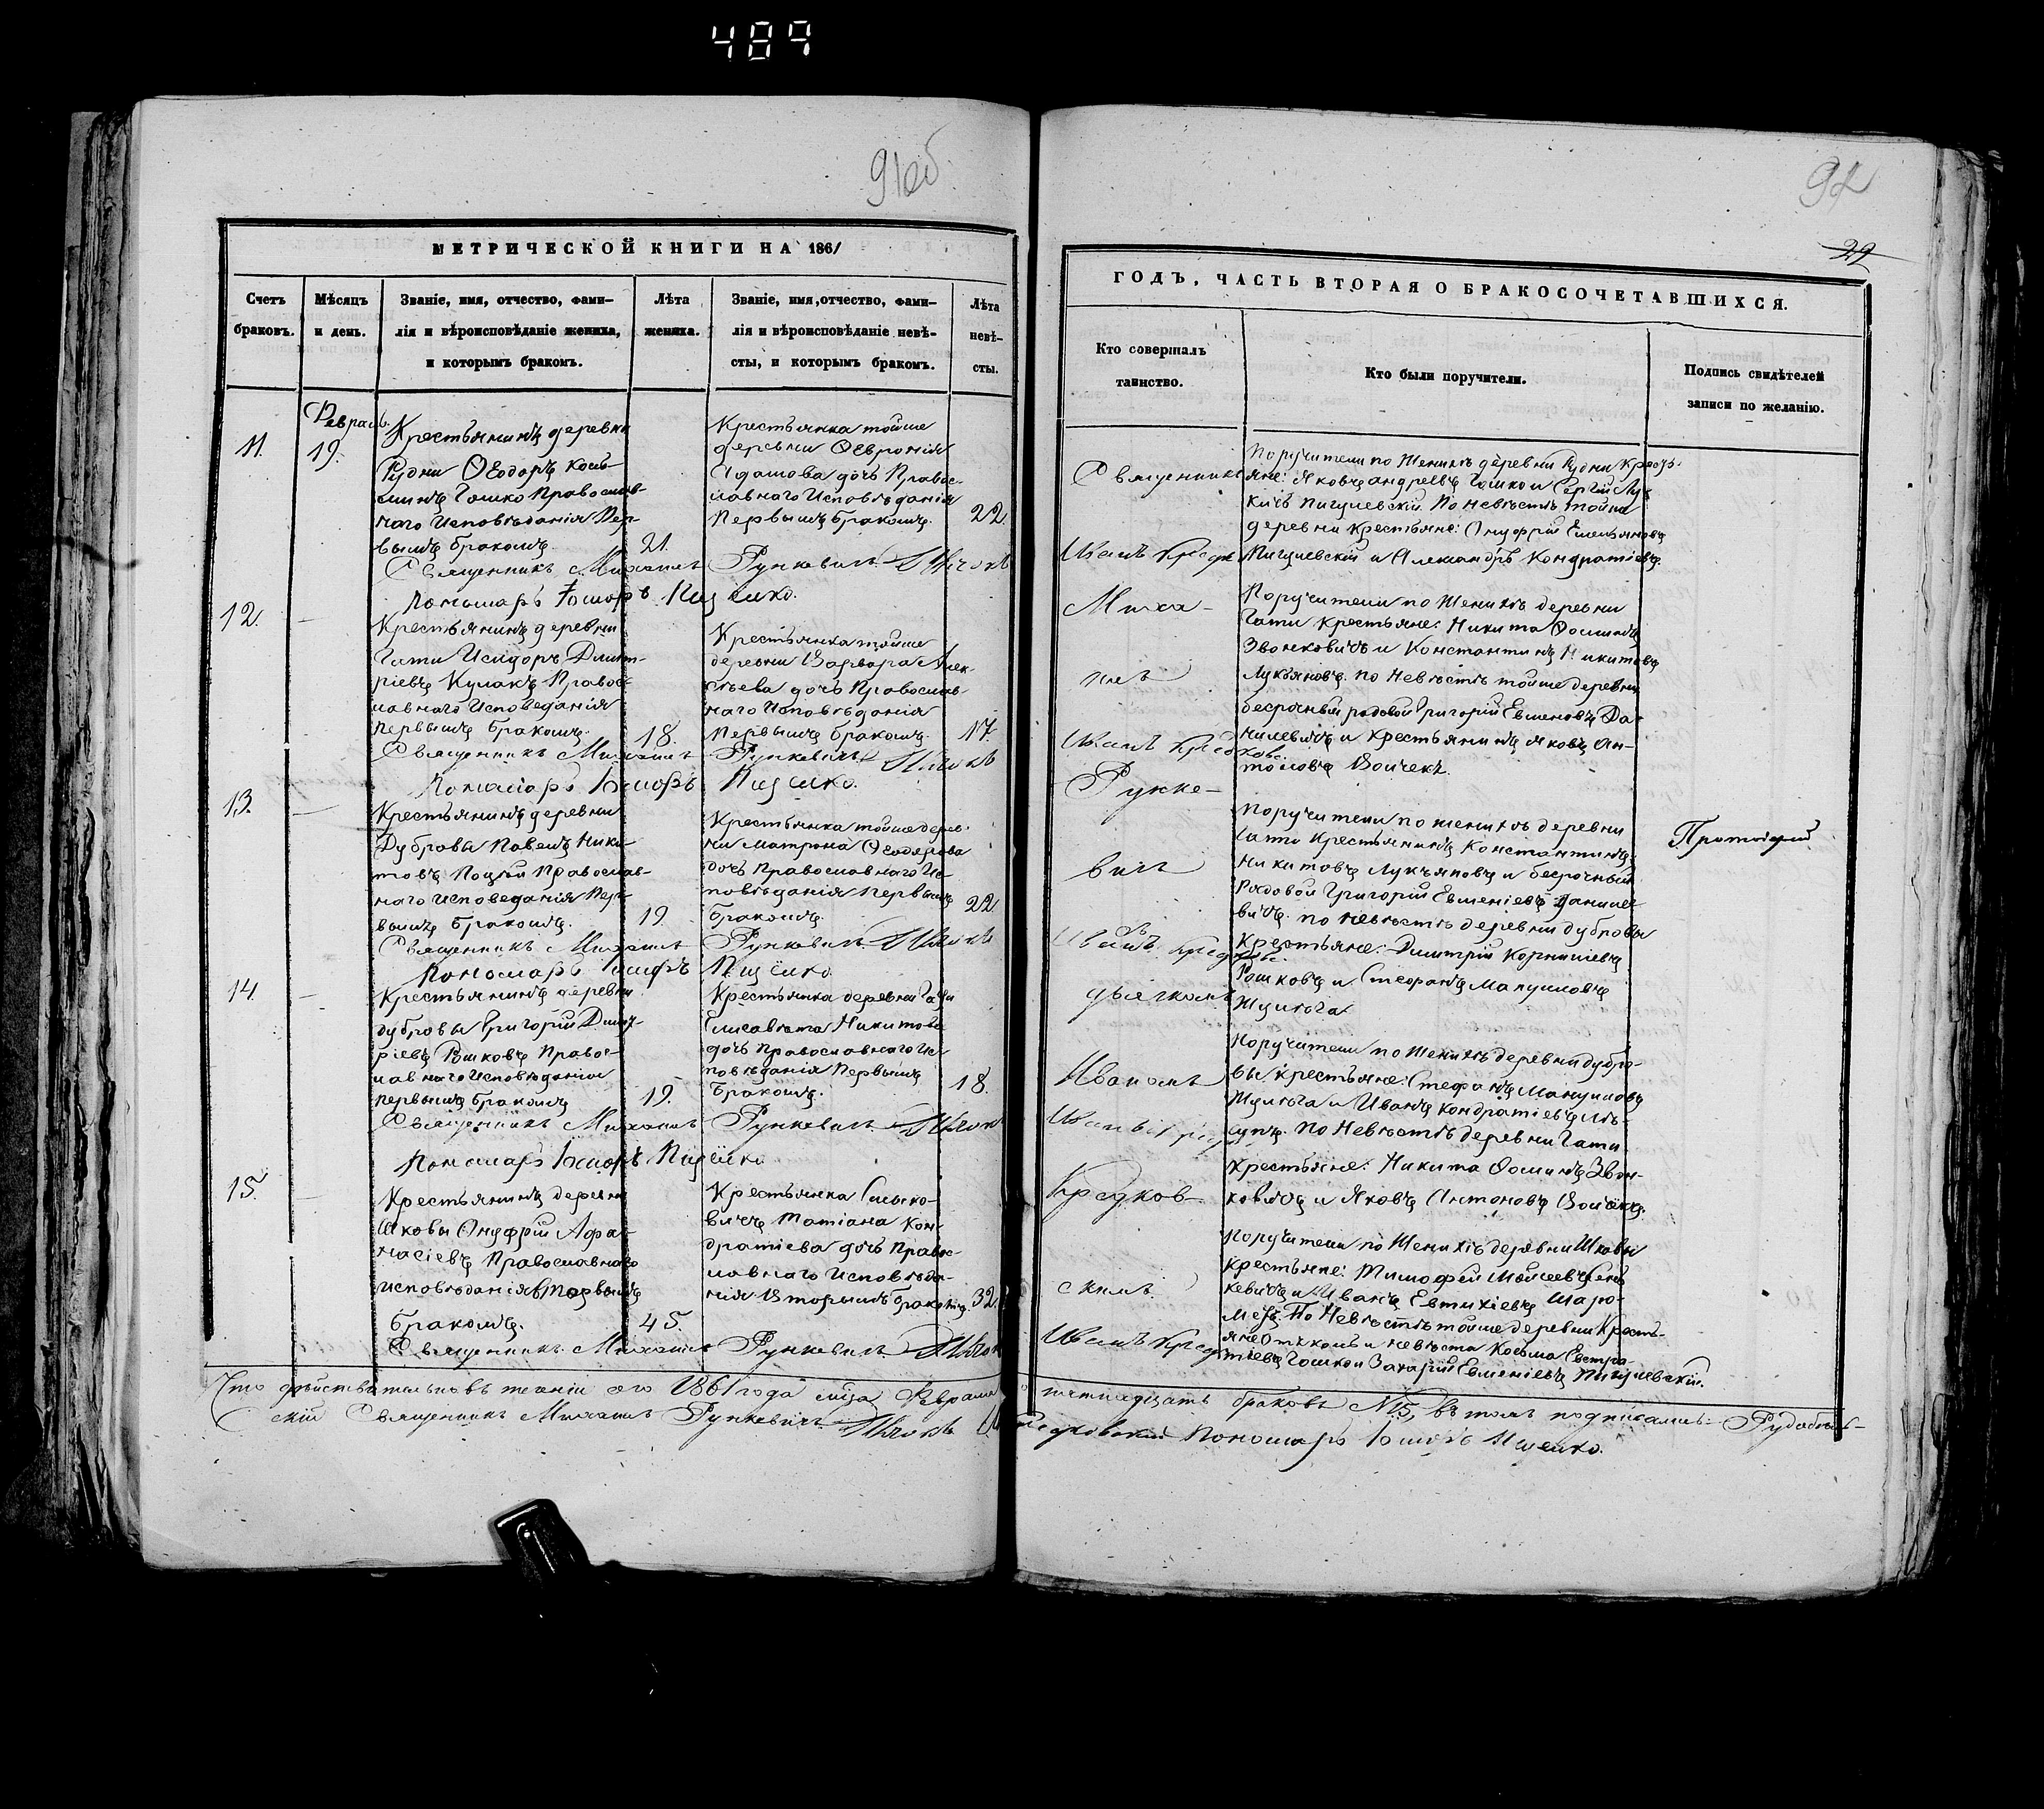 489
91об
92
22
МЕТРИЧЕСКОЙ КНИГИ НА 1861
Счетъ браковъ.
Мѣсяцъ и день.
Званіе, имя, отчество, фами-
лія и вѣроисповѣданіе жениха,
и которымъ бракомъ.
Лѣта жениха.
Званіе, имя, отчество, фами-
лія и вѣроисповѣданіе невѣ-
сты, и которымъ бракомъ.
Лѣта невѣ-
сты.
Февраль.
11.
19.
Крестьянинъ деревни
Рудни Ѳеодоръ Кось-
минъ Гошко Православ-
наго Исповѣданія Пер-
вымъ бракомъ.
21.
Крестьянка тойже
деревни Ѳевронія
Адамова дочь Правос-
лавнаго Исповѣданія
Первымъ бракомъ.
22.
Священникъ Михаилъ Рункевичъ Дьячокъ
Пономарь
12.
Крестьянинъ деревни
Гати Исидоръ Димит-
ріевъ Кулакъ Правос-
лавнаго Исповеданія
первымъ бракомъ.
18.
Крестьянка тойже
деревни Варвара Алек-
сѣева дочь Православ-
наго Исповѣданія
Первымъ бракомъ.
17.
Священникъ Михаилъ Рункевичъ Дьячокъ
Пономарь
13.
Крестьянинъ деревни
Дубровы Павелъ Ники-
товъ Поцѣй Православ-
наго Исповеданія Пер-
вымъ бракомъ.
19.
Крестьянка тойже дерев-
ни Матрона Ѳеодорова
дочь Православнаго Ис-
повѣданія Первымъ
бракомъ.
22.
Священникъ Михаилъ Рункевичъ Дьячокъ
Пономарь
14.
Крестьянинъ деревни
дубровы Григорій Димит-
ріевъ Рошковъ Правос-
лавнаго Исповѣданія
первымъ бракомъ
19.
Крестьянка деревни Гати
Елисавета Никитова
дочь Православнаго Ис-
повѣданія Первымъ
Бракомъ.
18.
Священникъ Михаилъ Рункевичъ Дьячокъ
Пономарь
15.
Крестьянинъ деревни
Шковы Онуфрій Афа-
насіевъ Православнаго
исповѣданія вторымъ
бракомъ.
45.
Крестьянка
Татіана Кон-
дратіева дочь Правос-
лавнаго Исповѣда-
нія Вторымъ бракомъ.
32.
Священникъ Михаилъ Рункевичъ Дьячокъ
ГОДЪ, ЧАСТЬ ВТОРАЯ О БРАКОСОЧЕТАВШИХСЯ.
Кто совершалъ
таинство.
Кто были поручители.
Подпись свидѣтелей
записи по желанію.
Священникъ
Миха-
илъ
Рунке-
вичъ
дьячкомъ
Иваномъ
скимъ.
Поручители по Женихѣ деревни Рудни Кресть-
яне: Яковъ андреевъ Гошко и Сергій Лу-
кичъ Пигулевскій. По невѣстѣ тойже
деревни Крестьяне: Онуфрій Емельяновъ
Пигулевскій и Александръ Кондратіевъ.
Поручители по Женихѣ деревни
Гати крестьяне: Никита Ѳоминъ
Звонковичъ и Константинъ Никитовъ
Лукьяновъ. по невѣстѣ тойже деревни
безсрочный рядовой Григорій Евменовъ Да-
нилевичъ и Крестьянинъ Яковъ Ан-
тоновъ Войчекъ.
Поручители по женихѣ деревни
Гати Крестьянинъ Константинъ
Никитовъ Лукъяновъ и безсрочный
Рядовой Григорій Евменіевъ Даниле-
вичъ. по невѣстѣ деревни дубровы
Крестьяне: Димитрій Корниліевъ
Рошковъ и Стефанъ Мануиловъ
Протоіерей
Поручители по Женихѣ деревни дубро-
вы крестьяне: Стефанъ Мануиловъ
и Иванъ Кондратіевъ
По Невѣстѣ деревни Гати
Крестьяне: Никита Ѳоминъ Звон-
ковичъ и Яковъ Антоновъ Войчекъ.
Поручители по Женихѣ деревни Шковы
крестьяне: Тимофей Моисеевъ
и Иванъ Евтихіевъ
По Невѣстѣ тойже деревни Кресть-
яне Косьма Евстра-
тіевъ Гошко и Захарій Евменіевъ Пигулевскій.
Что дѣйствительно въ теченіи сего 1861 года мѣсяца Февраля пятнадцать браковъ №15, въ томъ подписались: Рудобѣль-
скій Священникъ Михаилъ Рункевичъ Дьячокъ
Пономарь